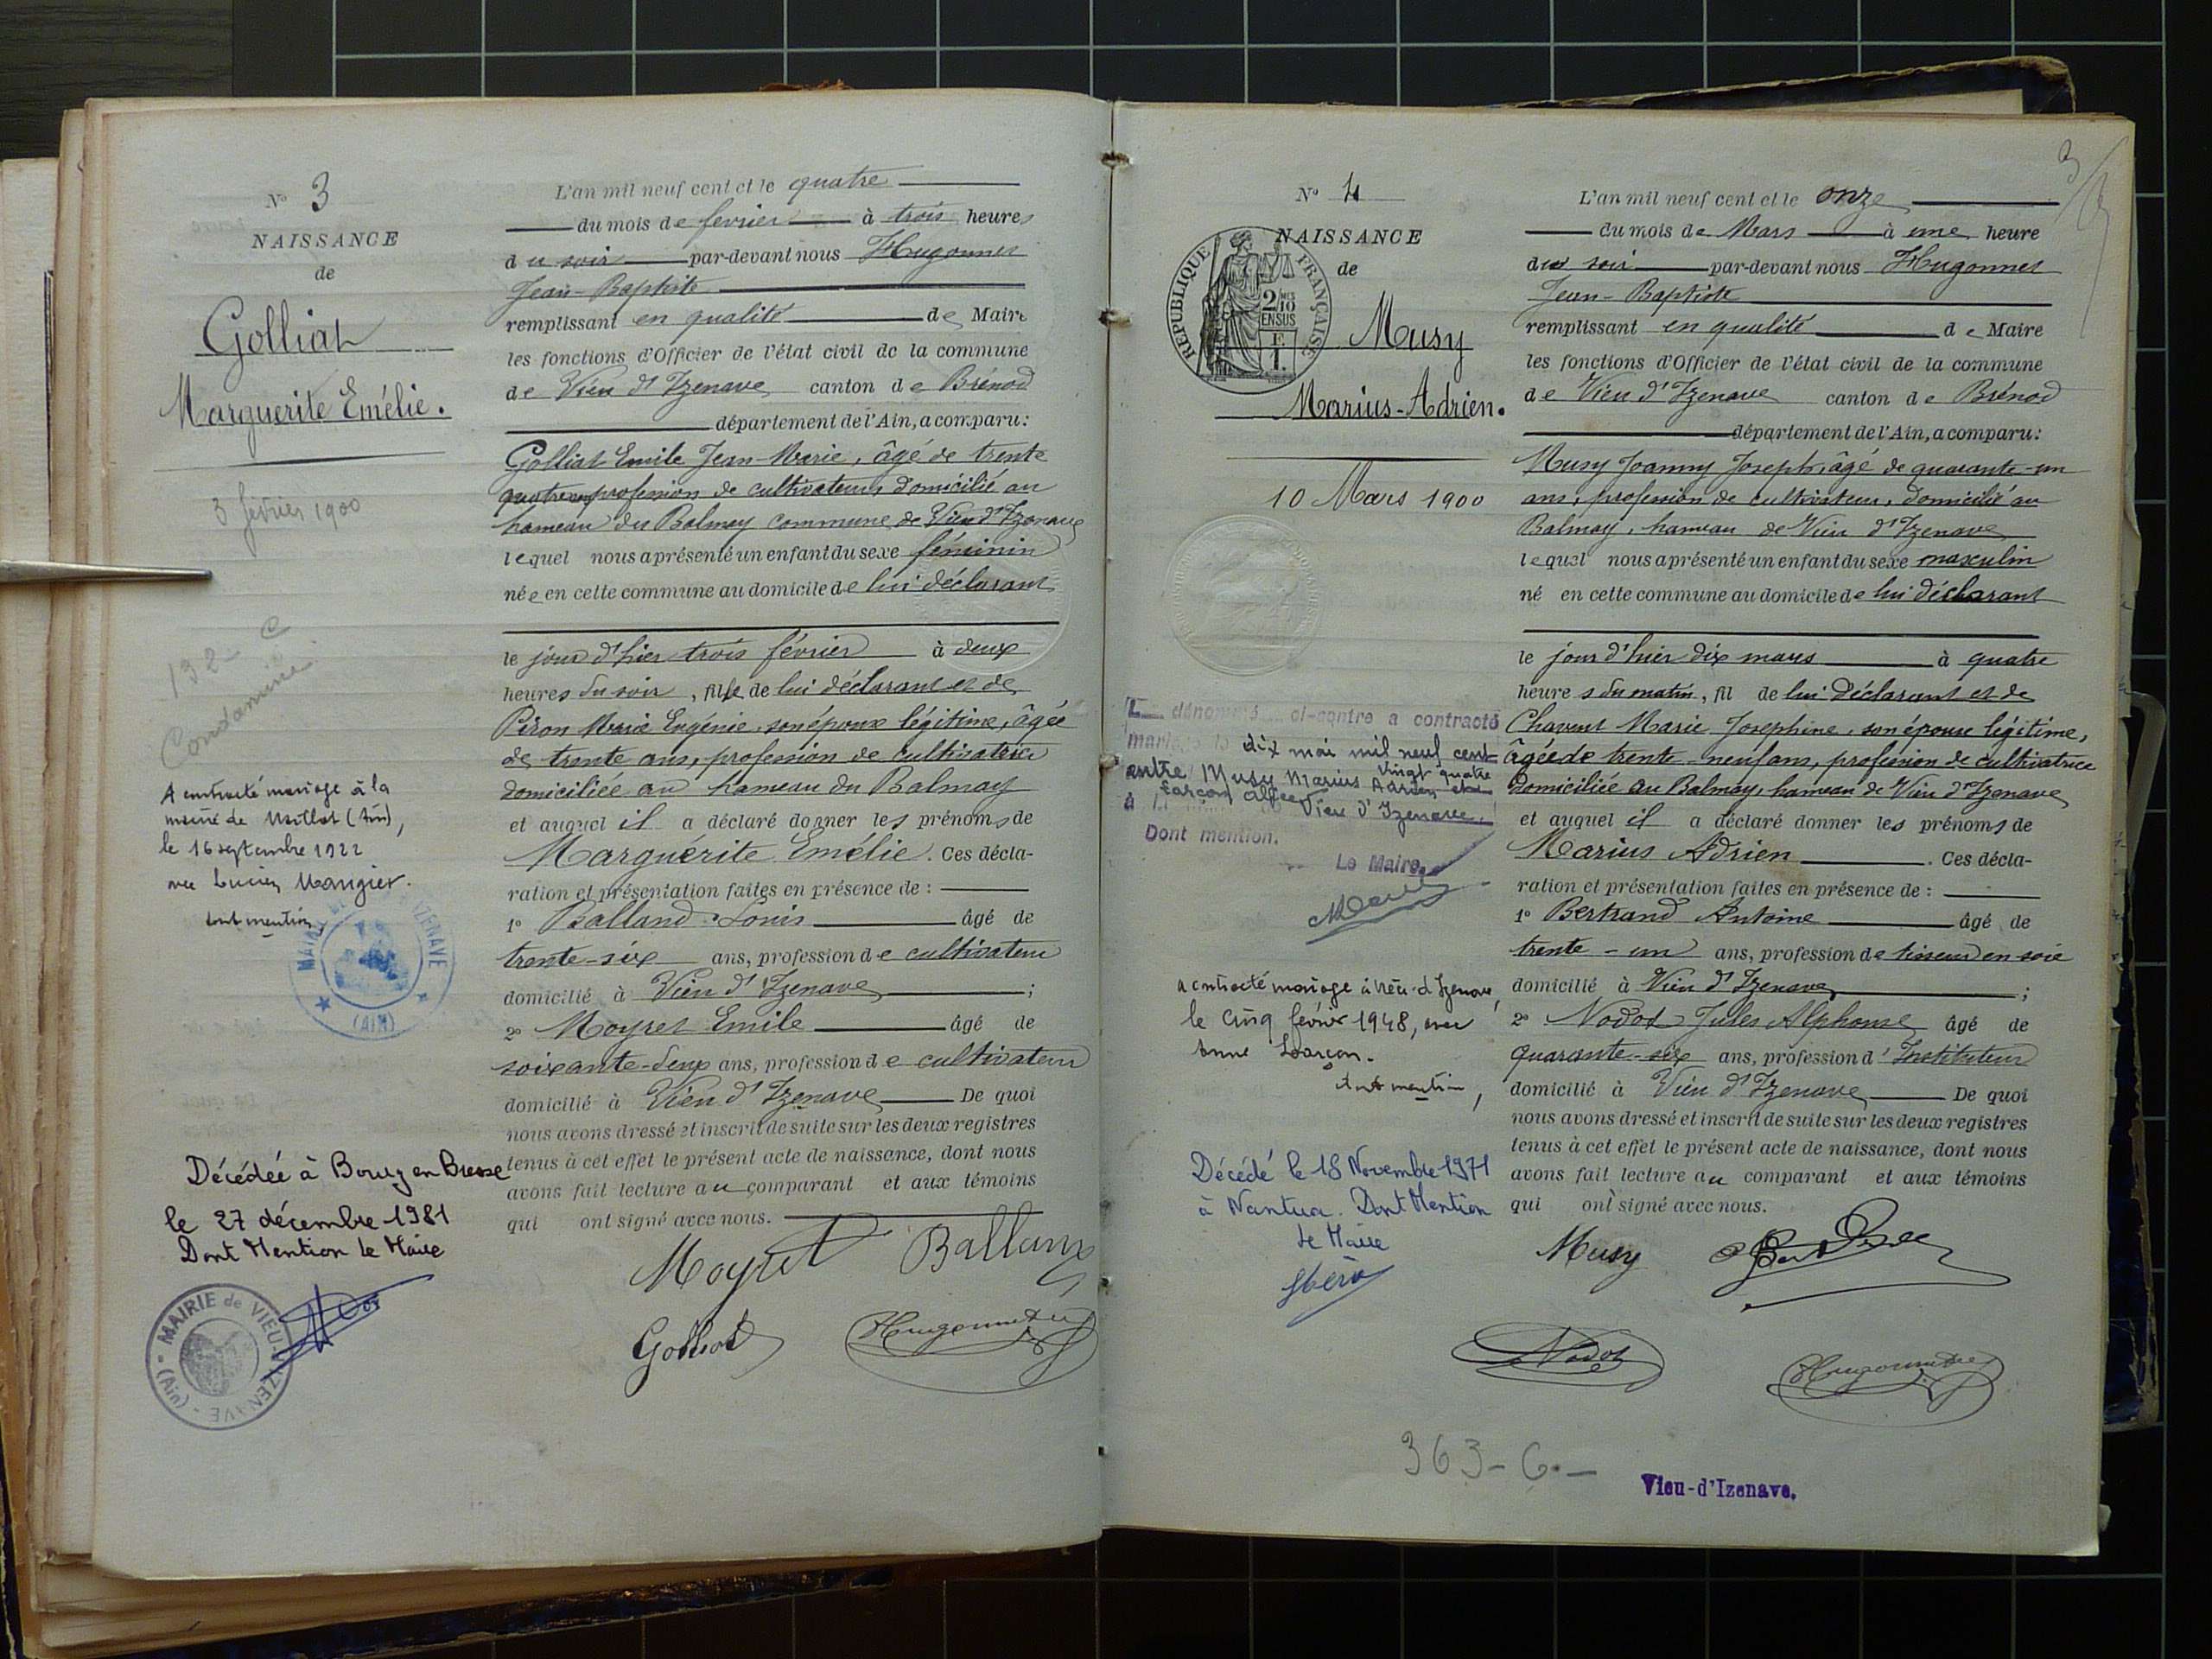 N° 3
NAISSANCE
de
Golliat
Marguerite Emélie.
3 février 1900
132 - C
Condamine
A contracté mariage à la
mairie de Maillat (Ain),
le 16 septembre 1922
avec Lucien Mangier.
dont mention
MAIRIE IZENAVE
(AIN)
Décédée à Bourg en Bresse
le 27 décembre 1981
Dont Mention le Maire
MAIRIE de VIEU-D'IZENAVE - (Ain)
L'an mil neuf cent et le quatre
du mois de fevrier à trois heures
du soir par-devant nous Hugonnet
Jean-Baptiste
remplissant en qualité de Maire
les fonctions d'Officier de l'état civil de la commune
de Vieu d'Izenave canton de Brénod
département de l'Ain, a comparu:
Golliat Emile Jean-Marie, âgé de trente
quatre ans profession de cultivateur domicilié au
hameau du Balmay commune de Vieu d'Izenave
lequel nous a présenté un enfant du sexe féminin
née en cette commune au domicile de lui déclarant
le jour d'hier trois février à deux
heures du soir, fille de lui déclarant et de
Piron Marie Eugénie, son épouse légitime, âgée
de trente ans, profession de cultivatrice
domiciliée au hameau du Balmay
et auquel il a déclaré donner les prénoms de
Marguerite Emélie. Ces décla-
ration et présentation faites en présence de :
1° Balland Louis âgé de
trente-six ans, profession de cultivateur
domicilié à Vieu d'Izenave ;
2° Moyret Emile âgé de
soixante-deux ans, profession de cultivateur
domicilié à Vieu d'Izenave De quoi
nous avons dressé et inscrit de suite sur les deux registres
tenus à cet effet le présent acte de naissance, dont nous
avons fait lecture au comparant et aux témoins
qui ont signé avec nous.
Moyret Balland
Golliat Hugonnet
3
N° 4
NAISSANCE
de
RÉPUBLIQUE FRANÇAISE
2/10 MES
EN SUS
1 F.
Musy
Marius-Adrien.
10 Mars 1900
L dénommé ci-contre a contracté
mariage le dix mai mil neuf cent
vingt quatre
entre Musy Marius Adrien et
Larçon
à Vieu d'Izenave.
Dont mention.
Le Maire,
a contracté mariage à Vieu-d'Izenave,
le cinq février 1948, avec
Anne Larçon.
dont mention,
Décédé le 18 Novembre 1971
à Nantua. Dont Mention
le Maire
L'an mil neuf cent et le onze
du mois de Mars à une heure
du soir par-devant nous Hugonnet
Jean-Baptiste
remplissant en qualité de Maire
les fonctions d'Officier de l'état civil de la commune
de Vieu d'Izenave canton de Brénod
département de l'Ain, a comparu:
Musy Joanny Joseph, âgé de quarante-un
ans, profession de cultivateur, domicilié au
Balmay, hameau de Vieu d'Izenave
lequel nous a présenté un enfant du sexe masculin
né en cette commune au domicile de lui déclarant
le jour d'hier dix mars à quatre
heures du matin, fil de lui déclarant et de
Chavent Marie Josephine, son épouse légitime,
âgée de trente-neuf ans, profession de cultivatrice
domiciliée au Balmay, hameau de Vieu d'Izenave
et auquel il a déclaré donner les prénoms de
Marius Adrien. Ces décla-
ration et présentation faites en présence de :
1° Bertrand Antoine âgé de
trente-un ans, profession de tisseur en soie
domicilié à Vieu d'Izenave ;
2° Nodot Jules Alphonse âgé de
quarante-six ans, profession d'Instituteur
domicilié à Vieu d'Izenave De quoi
nous avons dressé et inscrit de suite sur les deux registres
tenus à cet effet le présent acte de naissance, dont nous
avons fait lecture au comparant et aux témoins
qui ont signé avec nous.
Musy
Nodot Hugonnet
363 - C. -
Vieu-d'Izenave.